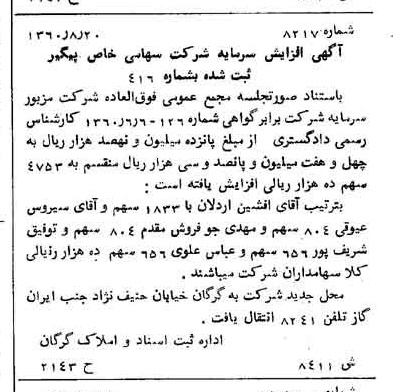 شماره ۸۲۱۷ ۱۳۶۰/۸/۲۰
آگهی افزایش سرمایه شرکت سهامی خاص پیگیر
ثبت شده بشماره ۴۱۶
باستناد صورتجلسه مجمع عمومی فوق‌العاده شرکت مزبور
سرمایه شرکت برابرگواهی شماره ۱۲۶-۱۳۶۰/۶/۶ کارشناس
رسمی دادگستری از مبلغ پانزده میلیون و نهصد هزار ریال به
چهل و هفت میلیون و پانصد و سی هزار ریال منقسم به ۴۷۵۳
سهم ده هزار ریالی افزایش یافته است :
بترتیب آقای افشین اردلان با ۱۸۳۳ سهم و آقای سیروس
عیوقی ۸۰۴ سهم و مهدی جو فروش مقدم ۸۰۴ سهم و توفیق
شریف پور ۶۵۶ سهم و عباس علوی ۶۵۶ سهم ده هزار ریالی
کلا سهامداران شرکت میباشند .
محل جدید شرکت به گرگان خیابان حنیف نژاد جنب ایران
گاز تلفن ۸۲۴۱ انتقال یافت .
اداره ثبت اسناد و املاک گرگان
ش ۸۴۱۱ ح ۲۱۴۳